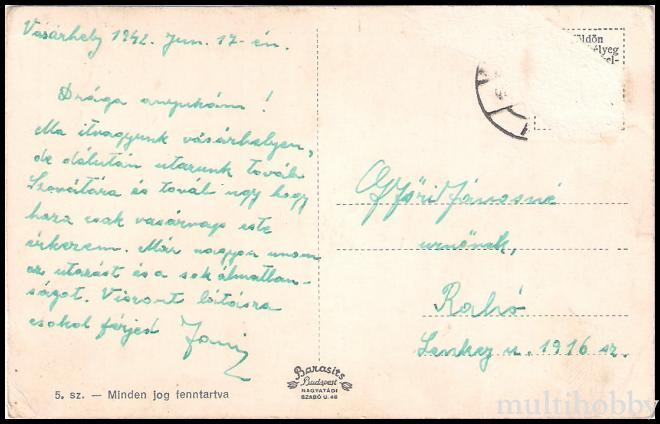 Vásárhely 1942. Jun. 17-én.
Drága anyukám!
Ma itvagyunk vásárhelyen,
de délután utazunk tovább
Szovátára és tovább ugy hogy
haza csak vasárnap este
érkezem. Már nagyon unom
az utazást és a sok álmatlan-
ságot. Viszont látásra
csokol férjed Jani
5. sz. — Minden jog fenntartva
Barasits
Budapest
NAGYATÁDI
SZABÓ U. 46
földön
bélyeg
kel-
Győri Jánosné
urnőnek,
Rahó
Lenkey u. 1916 sz.
multihobby